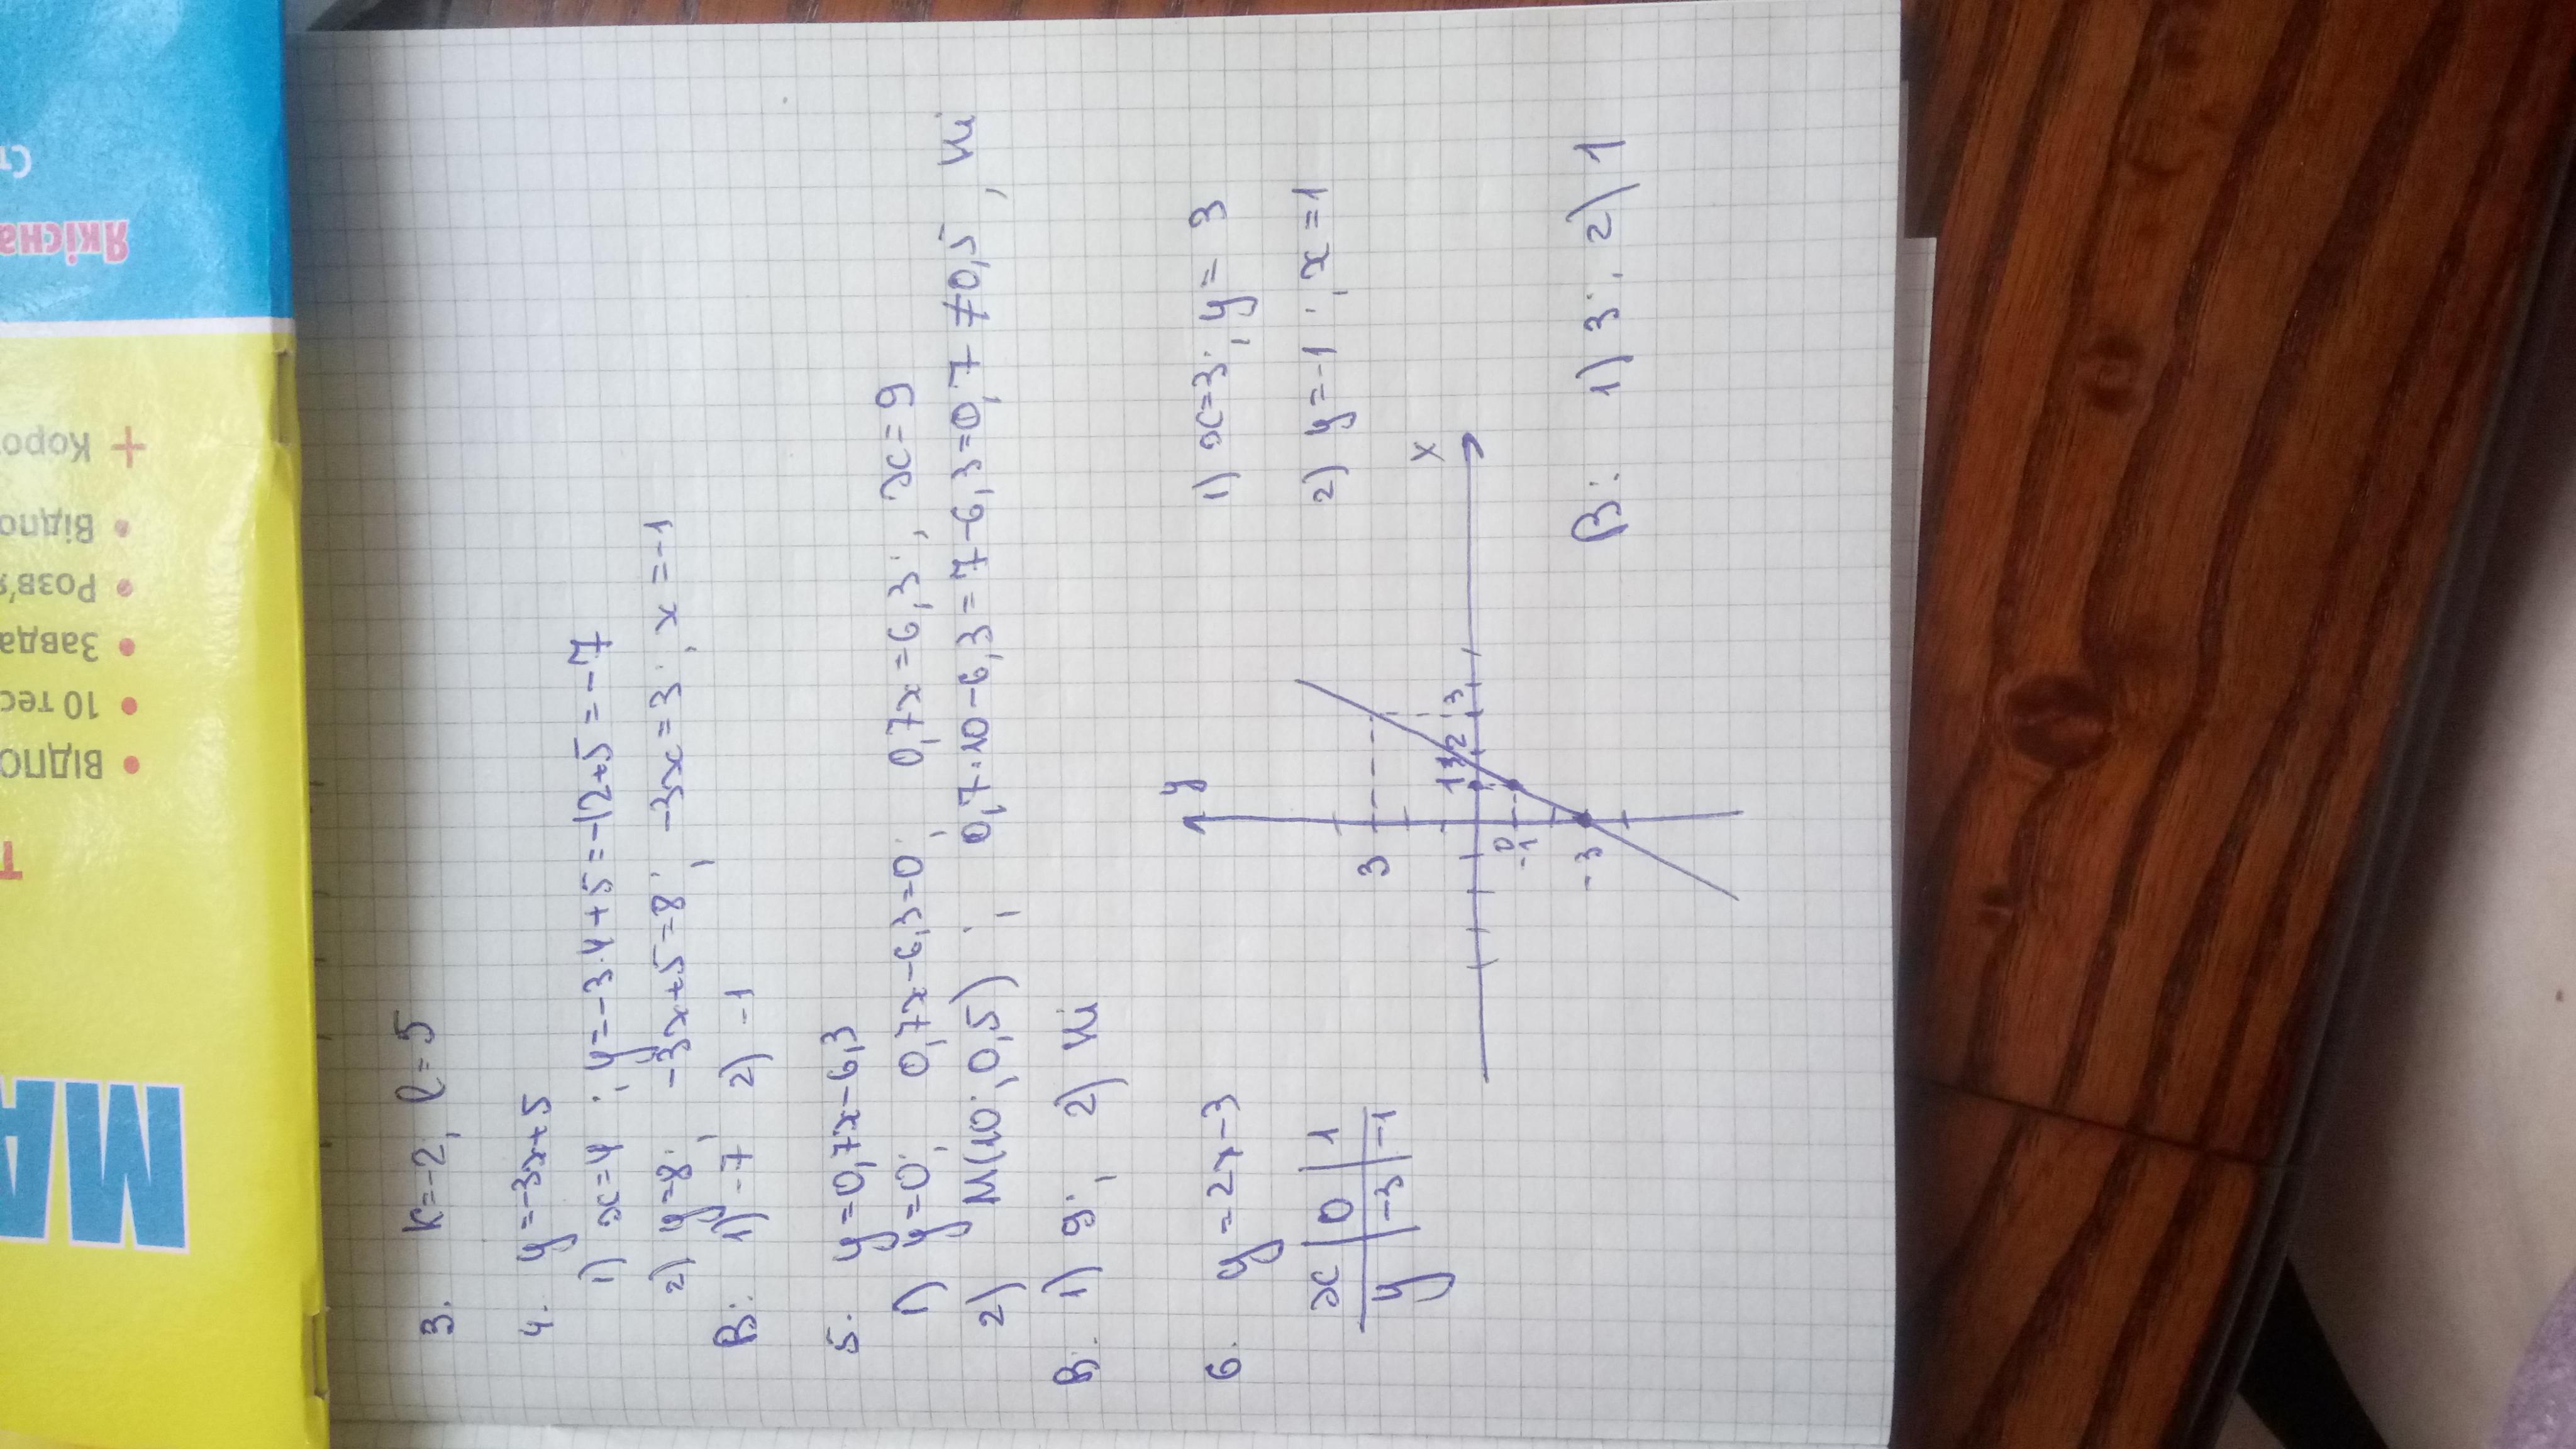 3. k=-2; l=5
4. y=-3x+5
1) x=4; y=-3·4+5=-12+5=-7
2) y=8; -3x+5=8; -3x=3; x=-1
В: 1) -7; 2) -1
5. y=0,7x-6,3
1) y=0; 0,7x-6,3=0; 0,7x=6,3; x=9
2) M(10; 0,5); 0,7·10-6,3=7-6,3=0,7≠0,5, Ні
В: 1) 9; 2) Ні
6. y=2x-3
x 0 1
y -3 -1
y
3
1 2 3
x
0
-1
-3
1) x=3; y=3
2) y=-1; x=1
В: 1) 3; 2) 1
МА
Т
ВІДПО
10 тес
Завда
Розв'я
Відпо
+ Коро
Якісна
Ст